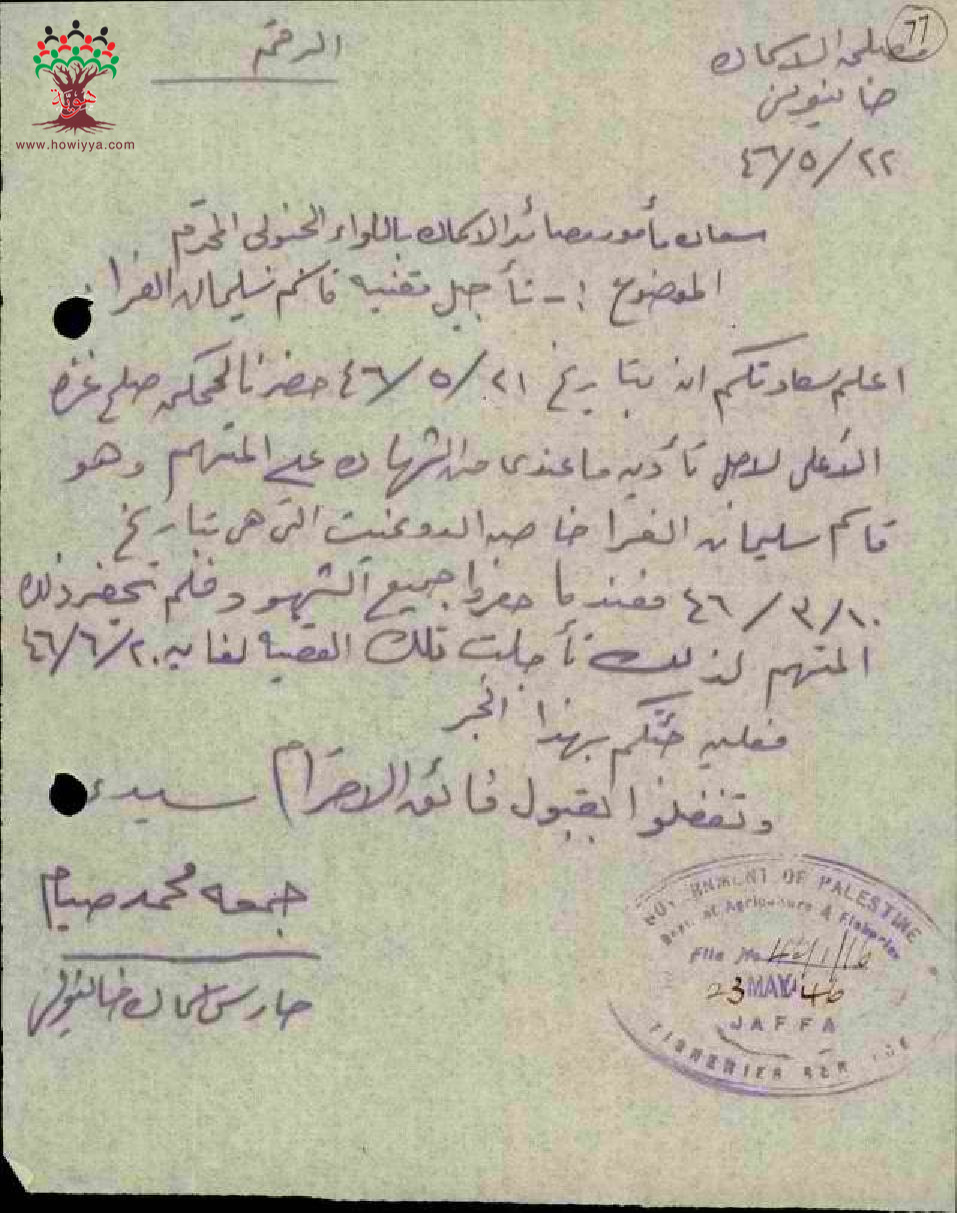 77
مصلحة الاسماك
خانيونس
٤٦/٥/٢٢
الرقم
هوية
www.howiyya.com
سعادة مأمور مصائد الاسماك باللواء الجنوبي المحترم
الموضوع :- تأجيل قضية قاسم سليمان الفرا
اعلم سعادتكم ان بتاريخ ٤٦/٥/٢١ حضرنا لمحكمة صلح غزه
لاجل تأدية ما عندى من الشهادة على المتهم وهو
قاسم سليمان الفرا التى هى بتاريخ
٤٦/٣/١٠ فعندما حضروا جميع الشهود فلم تحضر ذلك
المتهم لذلك تأجلت تلك القضية لغاية ٤٦/٦/٢٠
فعليه جئتكم بهذا الخبر
وتفضلوا بقبول فائق الاحترام سيدى
جمعه محمد صيام
حارس اسماك خانيونس
GOVERNMENT OF PALESTINE
Dept. of Agriculture & Fisheries
File No. 42/1/16
23 MAY 46
JAFFA
FISHERIES SERVICE